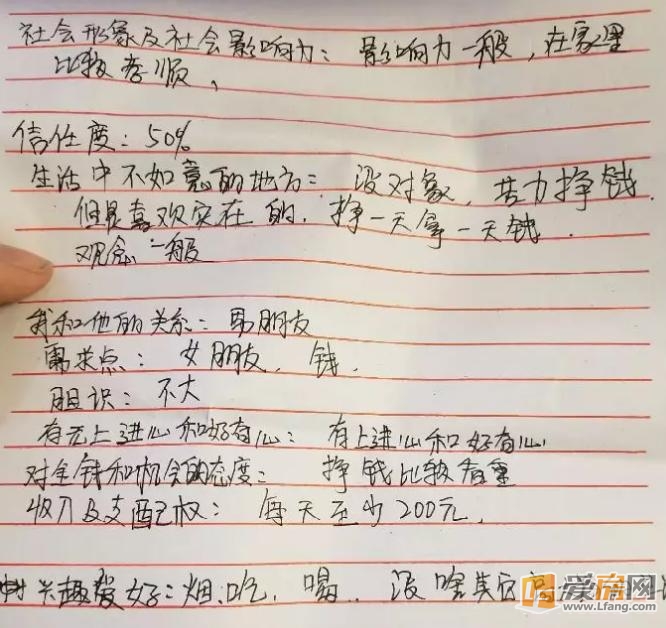 社会形象及社会影响力：影响力一般，在家里
比较孝顺，
信任度：50%
生活中不如意的地方：没对象，苦力挣钱
但是喜欢实在的．挣一天拿一天钱．
观念一般
我和他的关系：男朋友
需求点：女朋友、钱．
胆识：不大
有无上进心和好奇心：有上进心和好奇心
对金钱和机会的态度：挣钱比较看重
收入及支配权：每天至少200元．
兴趣爱好：烟．吃．喝．．没啥其它
爱房网
www.Lfang.com